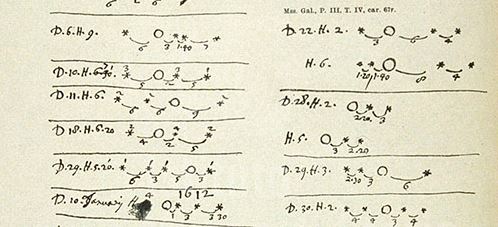 D. 6. H. 9. * * O * *
6 3 1.40 7
D. 10. H. 6.
D. 11. H. 6. * * O *
6 6 9
D 18. H. 6. 20 * O * *
4 2 5
D. 29. H. 5. 20. * * O *
D. 10. Januarij H. 4 1612
O * * *
1 2 2 30
Mss. Gal., P. III, T. IV, car. 67r.
D. 22. H. 2. * O * *
3 6 4
H. 6. * * O * *
1.20 1.40 8 4
D. 28. H. 2. O * *
2.20. 3
H. 5. O * *
3 2.20
D. 29. H. 3. * * O *
2.30 3 6
D. 30. H. 2. * * O * *
4 4 3 4